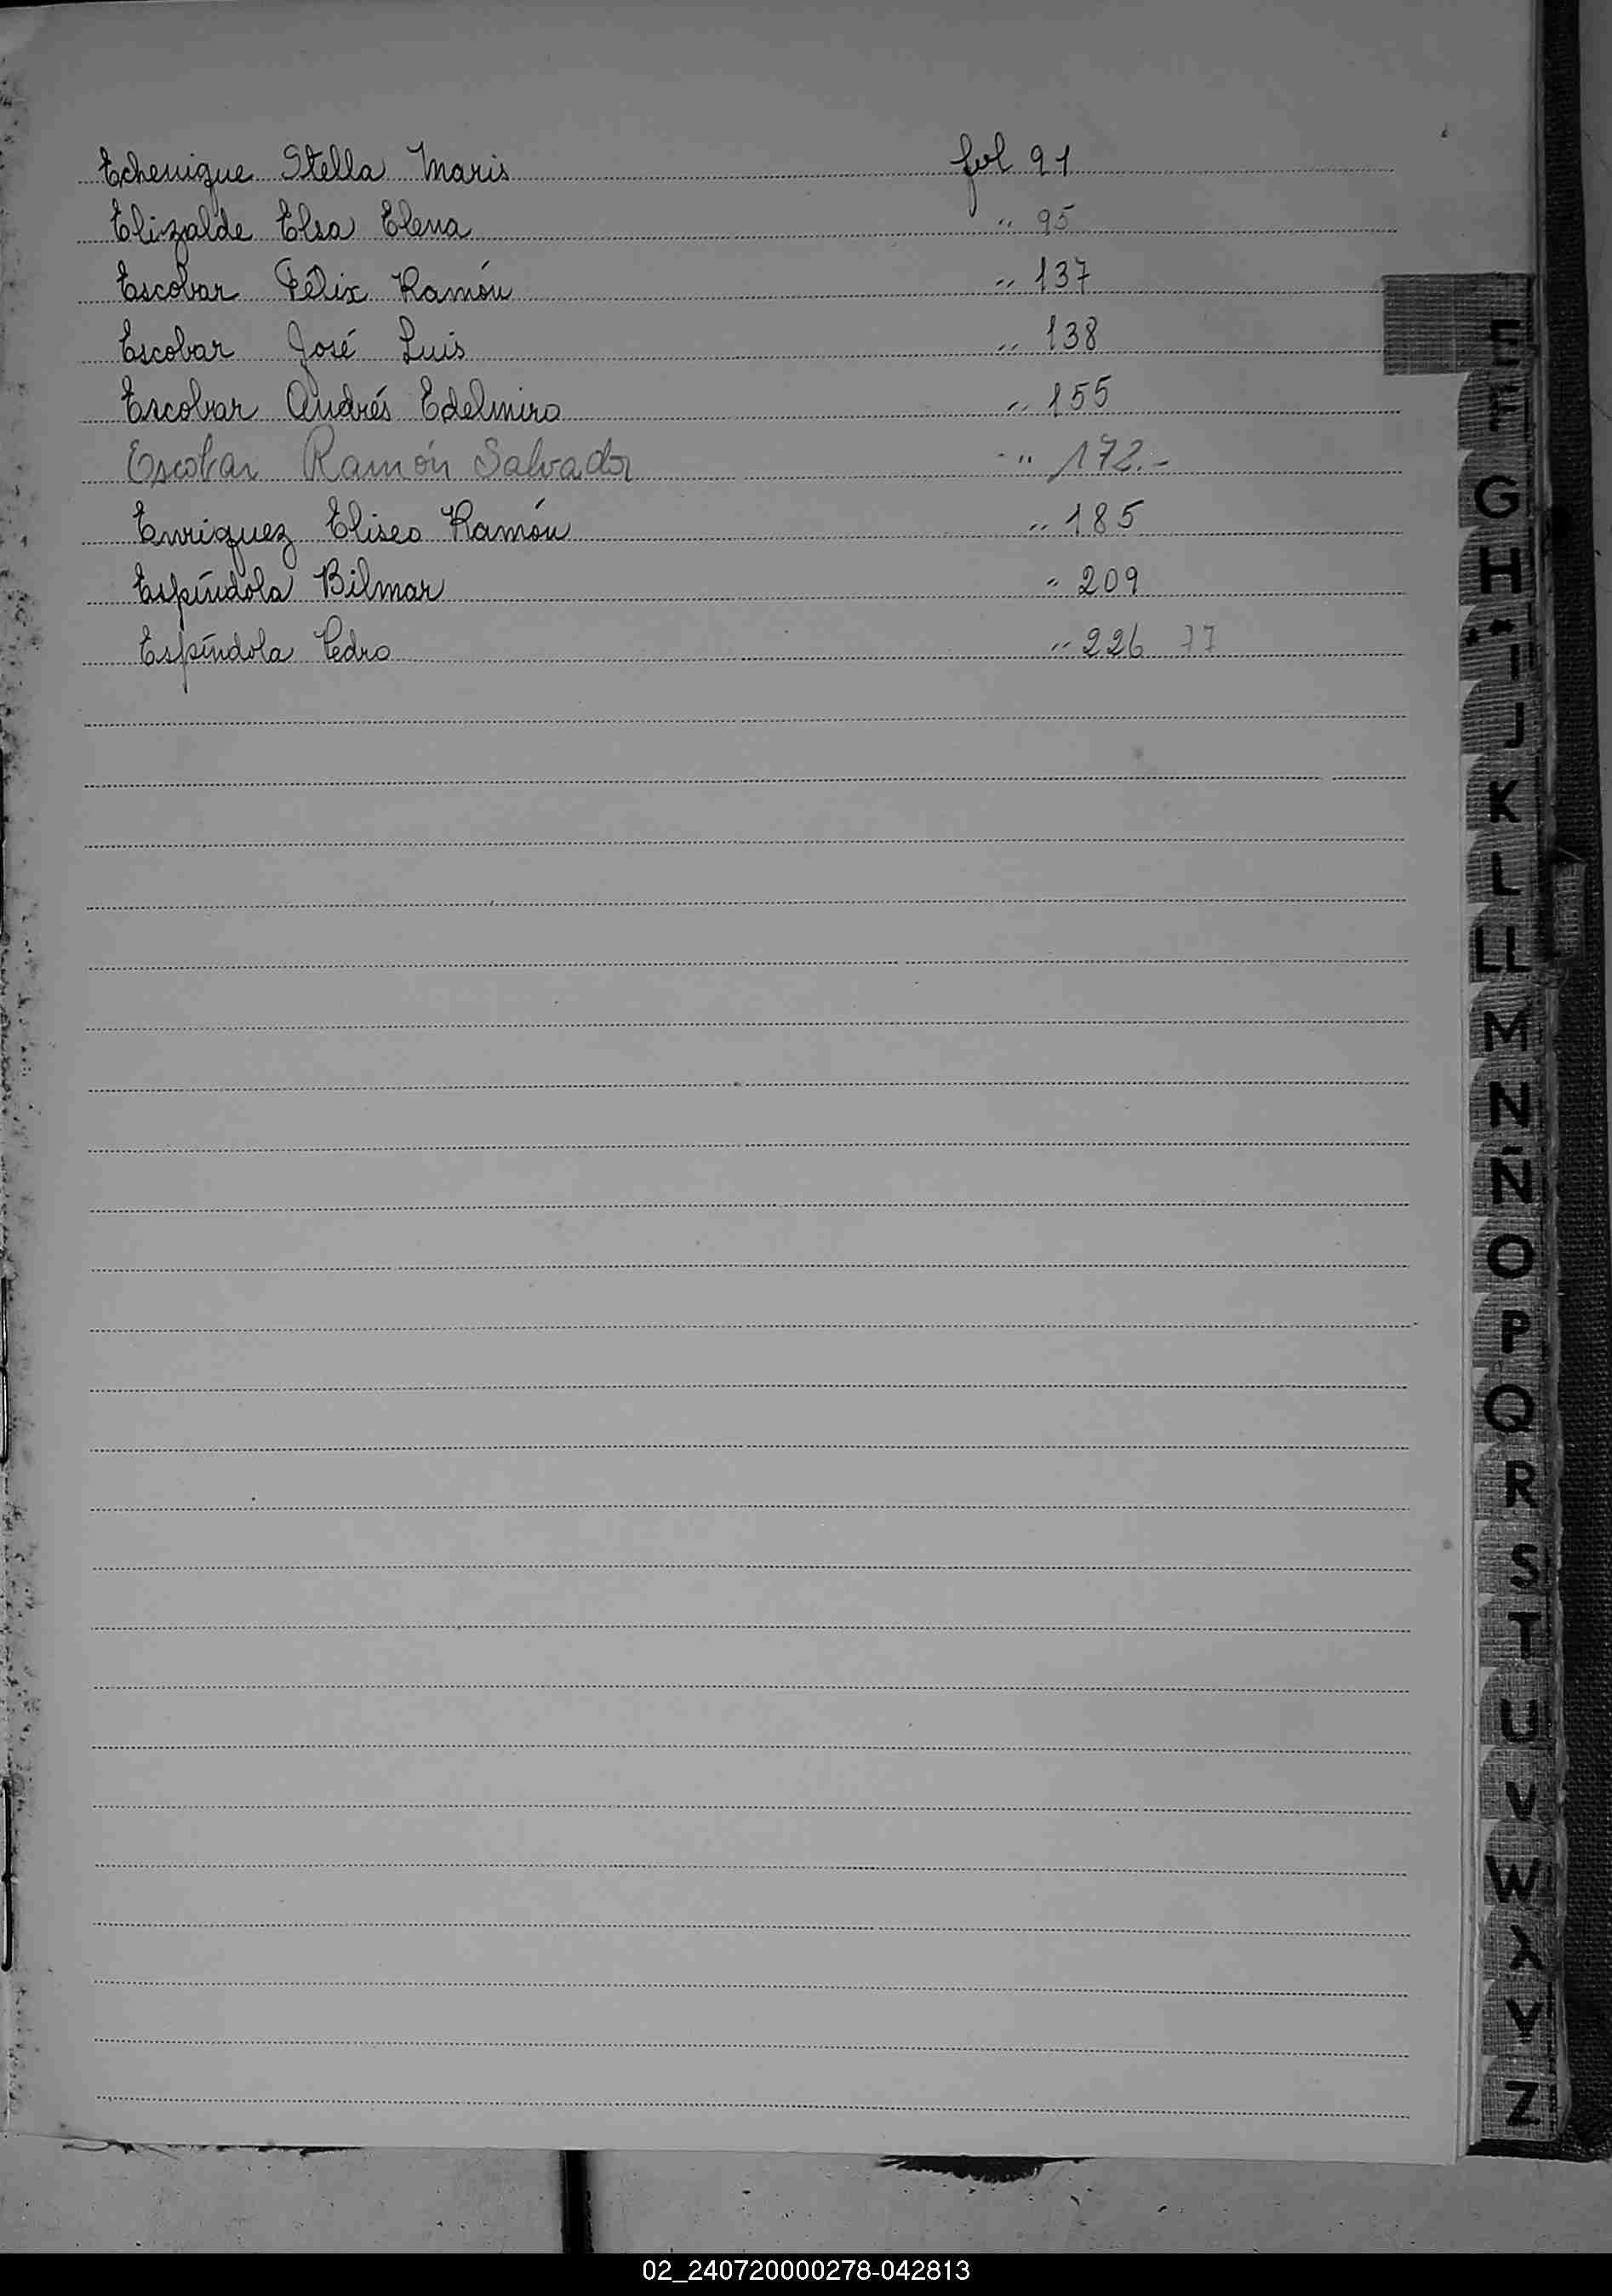 Echenique Stella Maris fol 91
Elizalde Elsa Elena " 95
Escobar Félix Ramón " 137
Escobar José Luis " 138
Escobar Andrés Edelmiro " 155
Escobar Ramón Salvador " 172.-
Enriquez Eliseo Ramón " 185
Espíndola Bilmar " 209
Espíndola Pedro " 226 77
E
F
G
H
I
J
K
L
LL
M
N
Ñ
O
P
Q
R
S
T
U
V
W
X
Y
Z
02_240720000278-042813